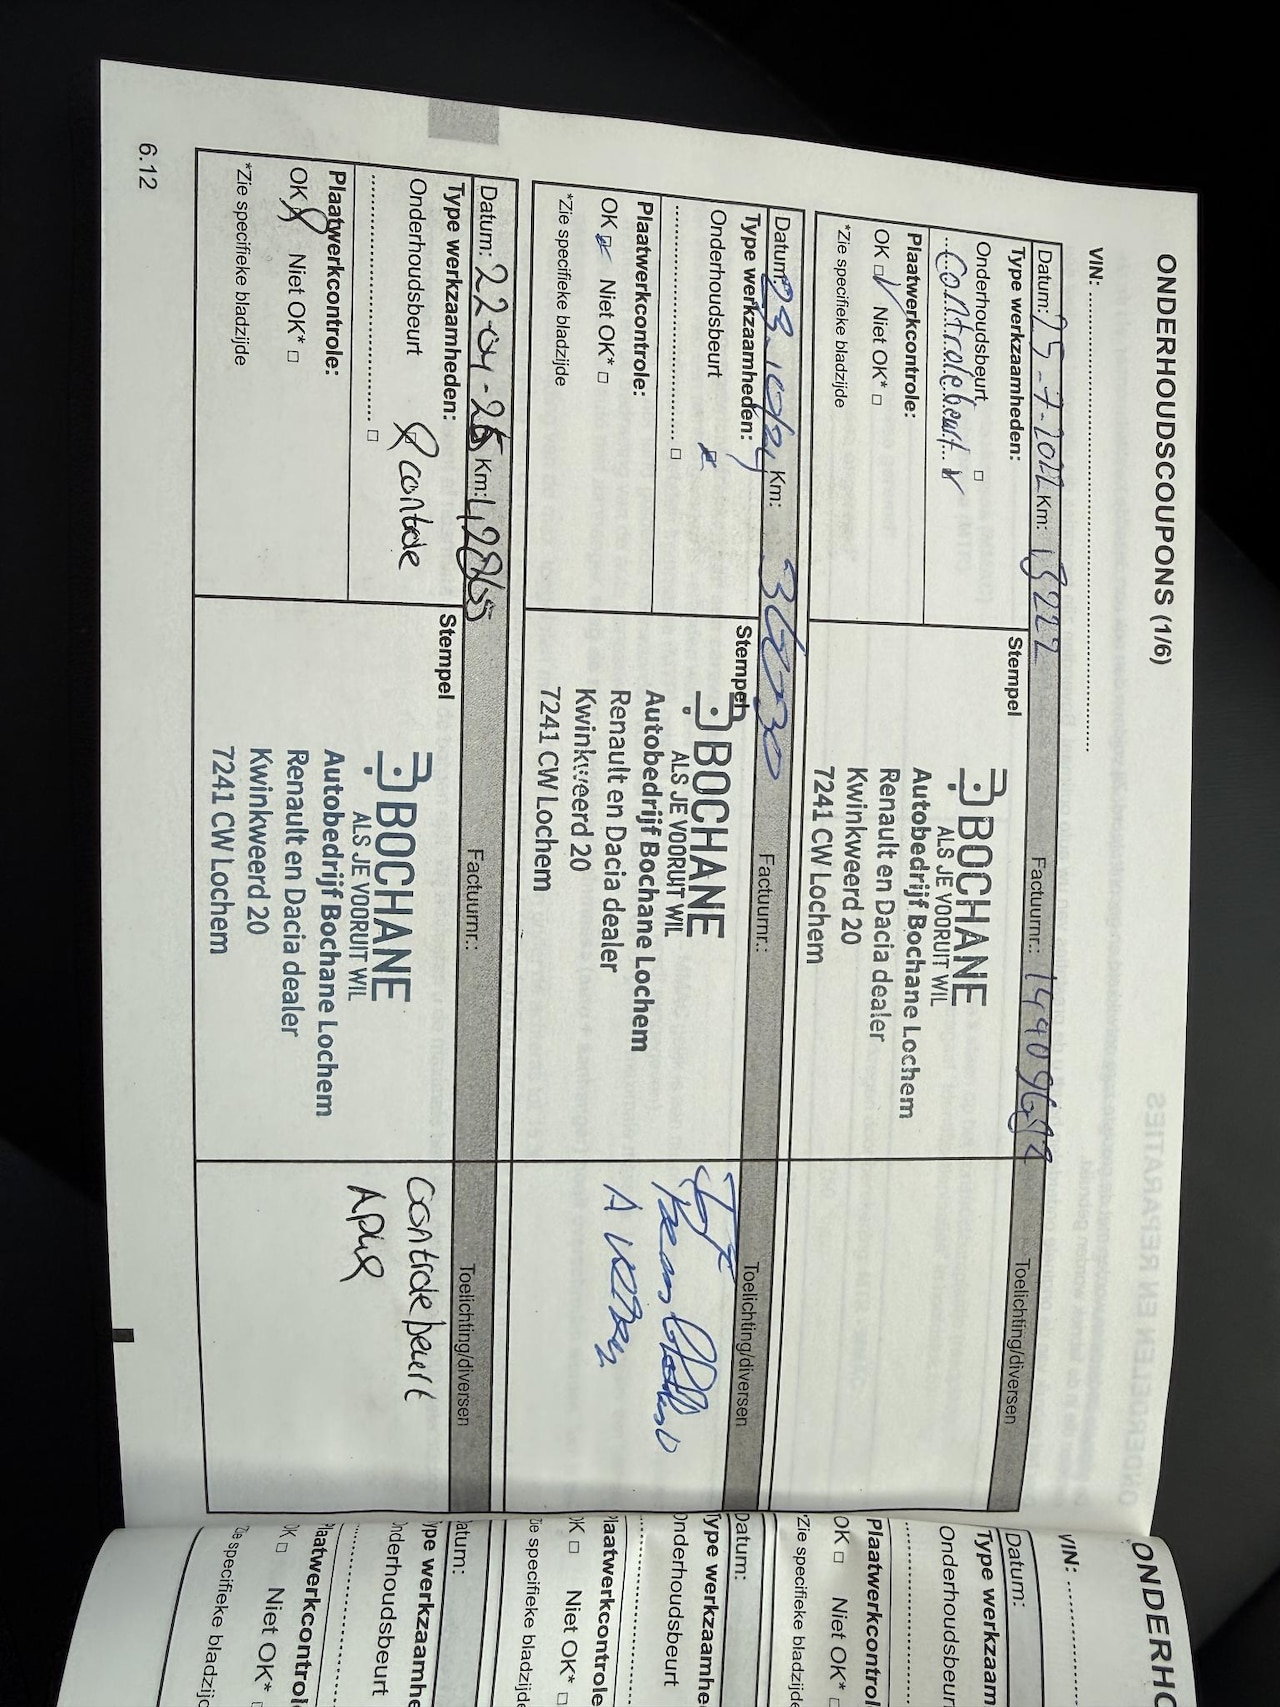 ONDERHOUDSCOUPONS (1/6)
VIN: ..............................
Datum: 25-7-2022 Km: Factuurnr.: Toelichting/diversen
Type werkzaamheden:
Onderhoudsbeurt □
Controlebeurt
Plaatwerkcontrole:
OK □ Niet OK* □
*Zie specifieke bladzijde
Stempel
BOCHANE
ALS JE VOORUIT WIL
Autobedrijf Bochane Lochem
Renault en Dacia dealer
Kwinkweerd 20
7241 CW Lochem
Datum: Km: Factuurnr.: Toelichting/diversen
Type werkzaamheden:
Onderhoudsbeurt
.............................. □
Plaatwerkcontrole:
OK □ Niet OK* □
*Zie specifieke bladzijde
Stempel
BOCHANE
ALS JE VOORUIT WIL
Autobedrijf Bochane Lochem
Renault en Dacia dealer
Kwinkweerd 20
7241 CW Lochem
Datum: Km: Factuurnr.: Toelichting/diversen
Type werkzaamheden:
Onderhoudsbeurt controle
.............................. □
Plaatwerkcontrole:
OK Niet OK* □
*Zie specifieke bladzijde
Stempel
BOCHANE
ALS JE VOORUIT WIL
Autobedrijf Bochane Lochem
Renault en Dacia dealer
Kwinkweerd 20
7241 CW Lochem
controle beurt
APK
6.12
ONDERH
VIN: ..........
Datum:
Type werkzaam
Onderhoudsbeur
Plaatwerkcontrol
OK □ Niet OK*
*Zie specifieke bladzijde
Datum:
ype werkzaamhe
Onderhoudsbeurt
laatwerkcontrole
OK □ Niet OK* □
Zie specifieke bladzijde
atum:
ype werkzaamhe
nderhoudsbeurt
laatwerkcontrol
OK □ Niet OK*
Zie specifieke bladzijd